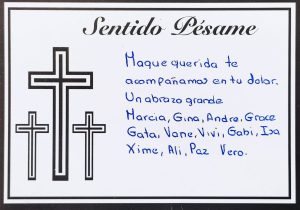 Sentido Pésame
Maque querida te
acompañamos en tu dolor.
Un abrazo grande
Marcia, Gina, Andre, Grace
Gata, Vane, Vivi, Gabi, Isa
Xime, Ali, Paz Vero.